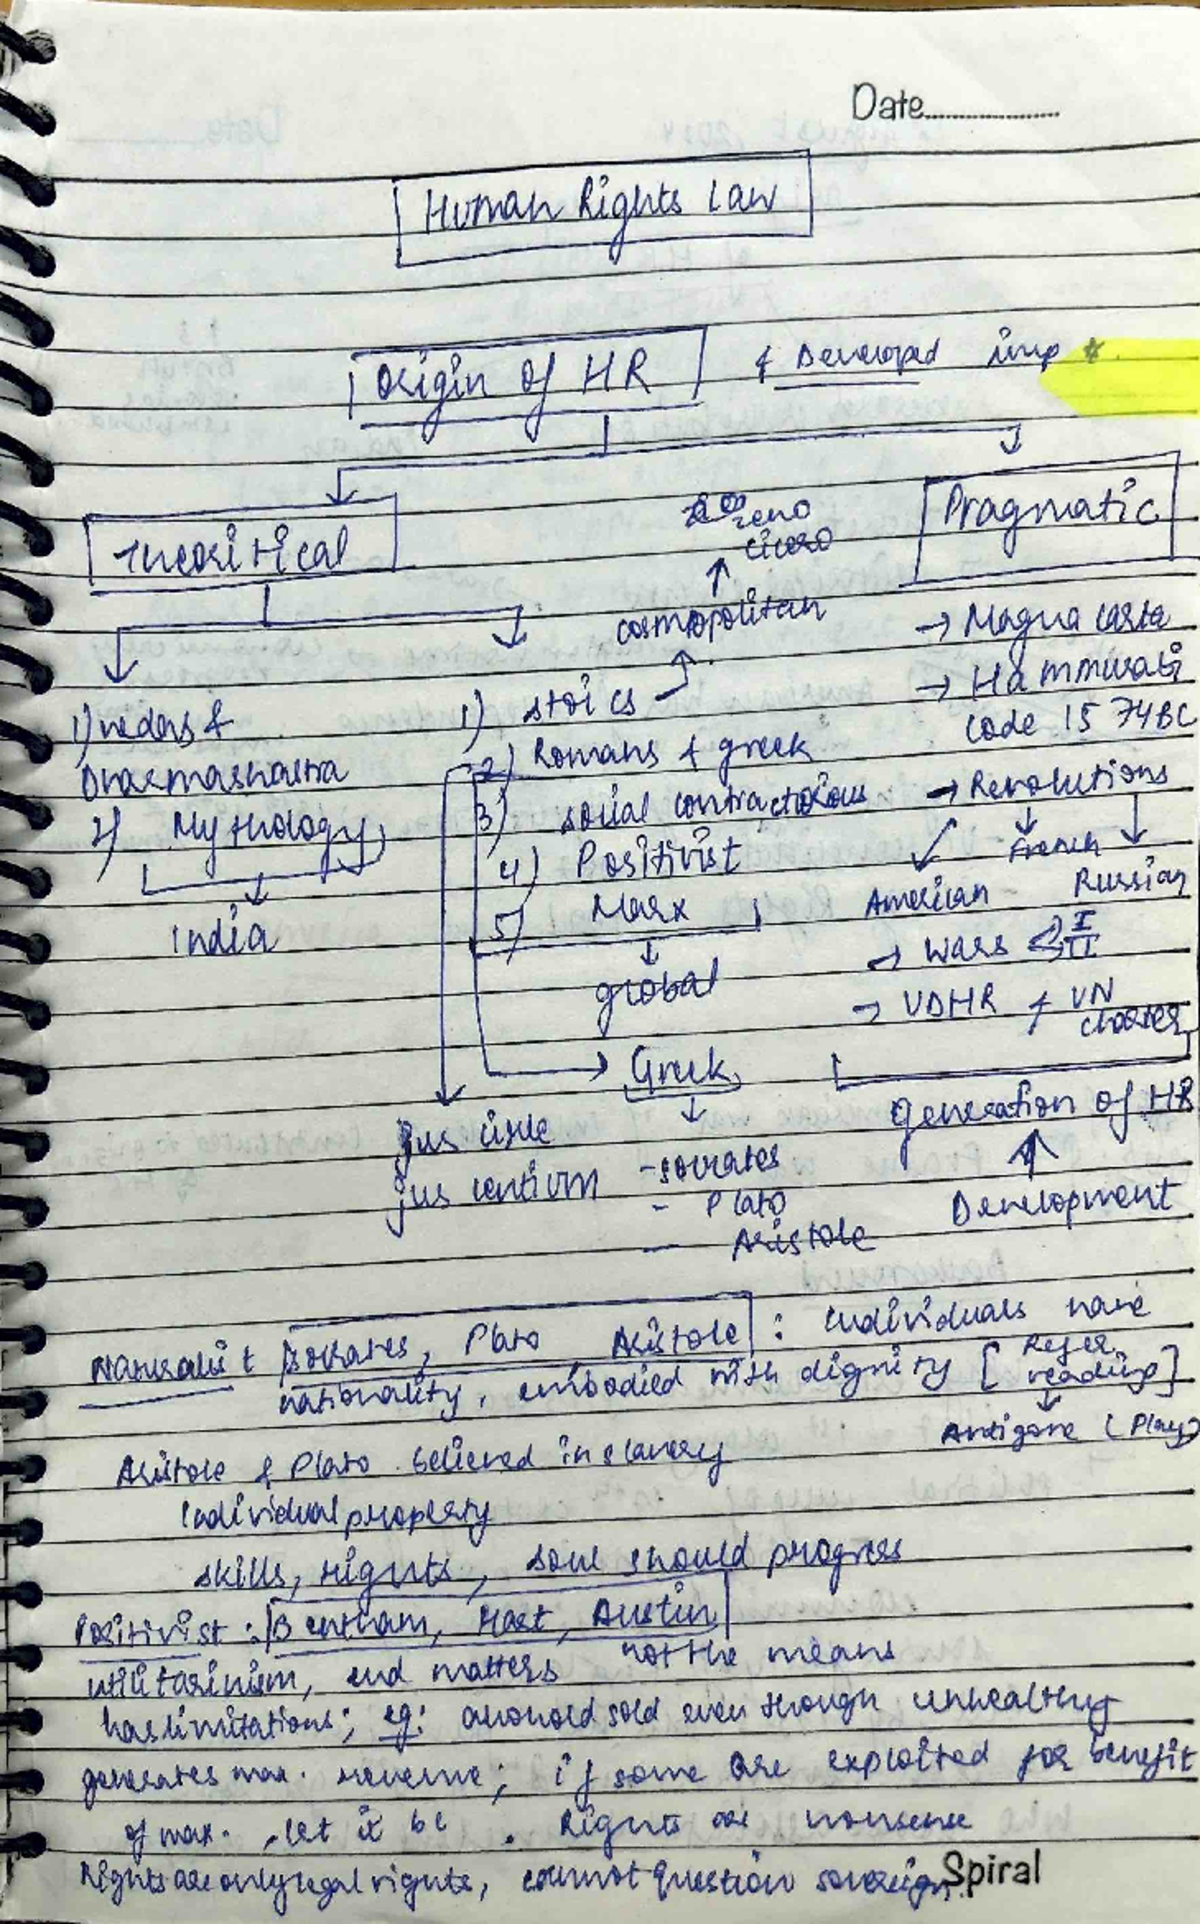 Date
Human Rights Law
Origin of HR & Developed imp *
Theoritical
Pragmatic
zeno
cicero
cosmopolitan
1) vedas &
Dharmashastra
2) Mythology
India
1) stoics
2) Romans & greek
3) social contractorious
4) Positivist
5) Marx
global
Greek
- socrates
- Plato
- Aristole
jus civile
jus gentium
→ Magna carta
→ Hammurabi
code 1574BC
→ Revolutions
American
French
Russian
→ Wars I
II
→ UDHR & UN
charter
Generation of HR
Development
Naturalist socrates, Plato Aristole : individuals have
rationality, embodied with dignity [Refer reading]
Antigone (Play)
Aristole & Plato believed in slavery
individual property
skills, rights, soul should progress
Positivist : Bentham, Hart, Austin
utilitarinism, end matters not the means
has limitations; eg: alcohol sold even though unhealthy
generates max. revenue; if some are exploited for benefit
of max. , let it be . Rights are nonsense
Rights are only legal rights, cannot question sovereign.
Spiral